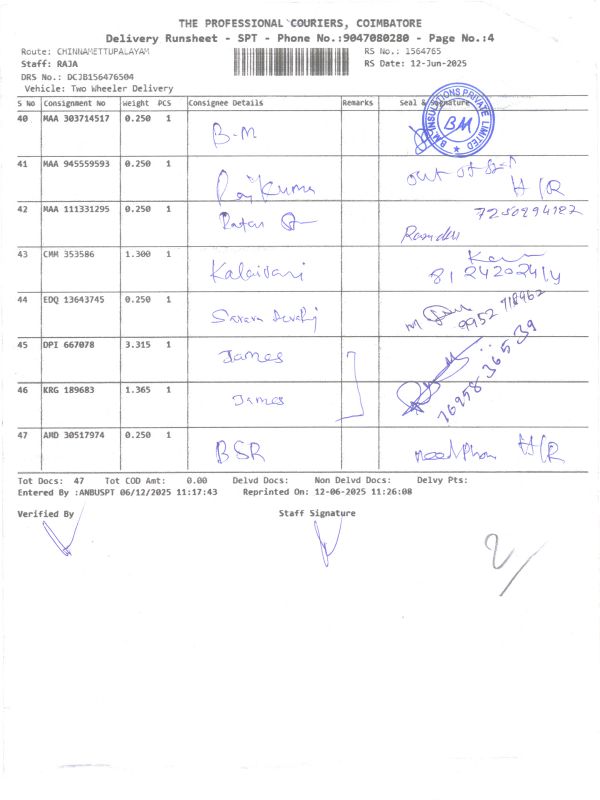 THE PROFESSIONAL COURIERS, COIMBATORE
Delivery Runsheet - SPT - Phone No.:9047080280 - Page No.:4
Route: CHINNAMETTUPALAYAM RS No.: 1564765
Staff: RAJA RS Date: 12-Jun-2025
DRS No.: DCJB156476504
Vehicle: Two Wheeler Delivery
S No Consignment No Weight PCS Consignee Details Remarks Seal & Signature
40 MAA 303714517 0.250 1 B-M
BM INSULATIONS PRIVATE LIMITED
BM
41 MAA 945559593 0.250 1 Rajkumar out of H/R
42 MAA 111331295 0.250 1 Ratan 7250294182
Ramdev
43 CMM 353586 1.300 1 Kalaivani
8124202414
44 EDQ 13643745 0.250 1 9952 718962
45 DPI 667078 3.315 1 James
46 KRG 189683 1.365 1 James 76958 36539
47 AMD 30517974 0.250 1 BSR need phon H/R
Tot Docs: 47 Tot COD Amt: 0.00 Delvd Docs: Non Delvd Docs: Delvy Pts:
Entered By :ANBUSPT 06/12/2025 11:17:43 Reprinted On: 12-06-2025 11:26:08
Verified By Staff Signature
2/